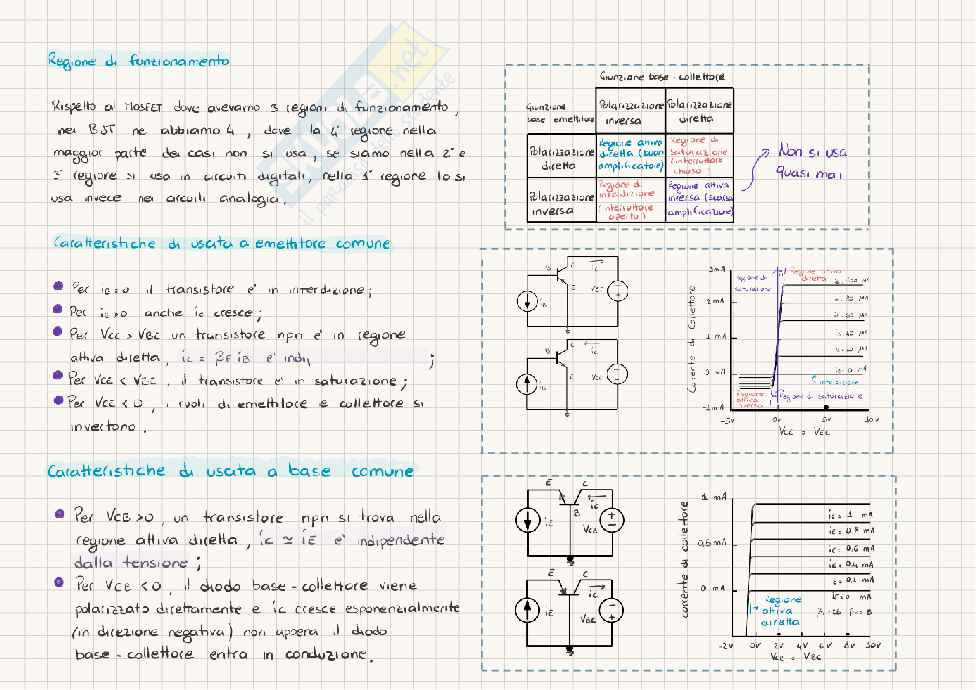 Regione di funzionamento
Rispetto al MOSFET dove avevamo 3 regioni di funzionamento,
nei BJT ne abbiamo 4, dove la 4° regione nella
maggior parte dei casi non si usa, se siamo nella 2° e
3° regione si usa in circuiti digitali, nella 1° regione lo si
usa invece nei circuiti analogia.
Giunzione base-collettore
Giunzione
base emettitore
Polarizzazione
inversa
Polarizzazione
diretta
Polarizzazione
diretta
Regione attiva
diretta (buon
amplificatore)
Regione di
saturazione
(interruttore
chiuso)
Polarizzazione
inversa
Regione di
interdizione
(interruttore
aperto)
Regione attiva
inversa (scarsa
amplificazione)
Non si usa
quasi mai
Caratteristiche di uscita a emettitore comune
Per iB=0 il transistore e' in interdizione;
Per iB>0 anche ic cresce;
Per VCE > VBE un transistore npn e' in regione
attiva diretta, ic = βF iB e' indi ;
Per VCE < VBE, il transistore e' in saturazione;
Per VCE < 0, i ruoli di emettitore e collettore si
invertono.
B
C
ic
E
VCE
iB
B
C
ic
E
VEC
iB
Corrente di Collettore
3mA
2mA
1mA
0 mA
-1mA
-5V
0V
5V
10V
VCE o VEC
Regione di
saturazione
Regione attiva
diretta
Regione
attiva
inversa
Regione di saturazione
Caratteristiche di uscita a base comune
Per VCB>0, un transistore npn si trova nella
regione attiva diretta, ic ≃ iE e' indipendente
dalla tensione;
Per VCB <0, il diodo base-collettore viene
polarizzato direttamente e ic cresce esponenzialmente
(in direzione negativa) non appena il diodo
base-collettore entra in conduzione.
E
C
ic
B
iE
VCB
E
C
ic
iE
VBC
corrente di collettore
1 mA
0,5mA
0 mA
iE = 1 mA
iE = 0.8 mA
iE = 0.6 mA
iE = 0.4 mA
iE = 0.2 mA
iE = 0 mA
Regione
attiva
diretta
-2V
0V
2V
4V
6V
8V
10V
VCB o VBC